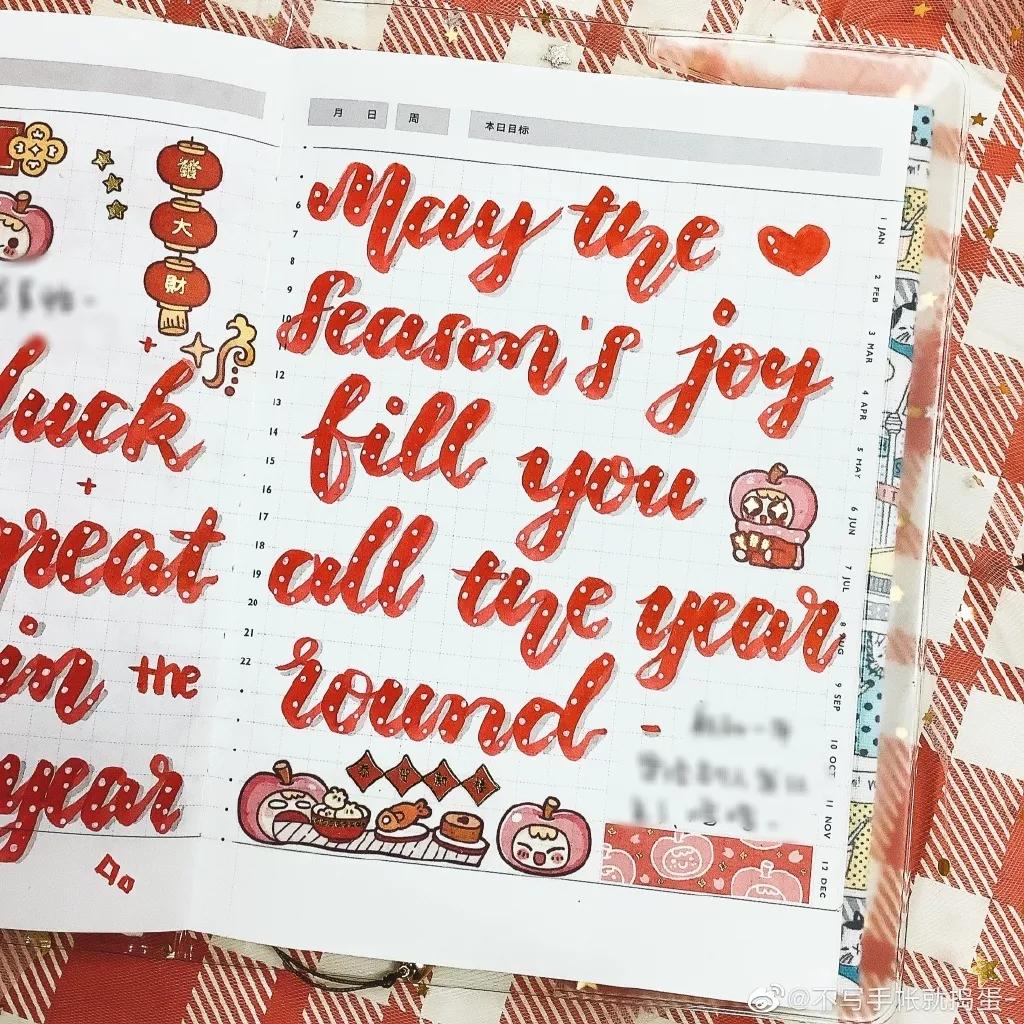 發
大
財
luck
great
in the
year
月 日 周 本日目标
May the
season's joy
fill you
all the year
round
6
7
8
9
10
11
12
13
14
15
16
17
18
19
20
21
22
1 JAN
2 FEB
3 MAR
4 APR
5 MAY
6 JUN
7 JUL
8 AUG
9 SEP
10 OCT
11 NOV
12 DEC
@不写手帐就捣蛋-